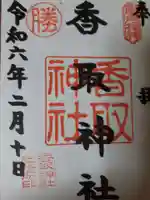 奉拝
香取神社
香取
神社
勝
令和六年二月十日